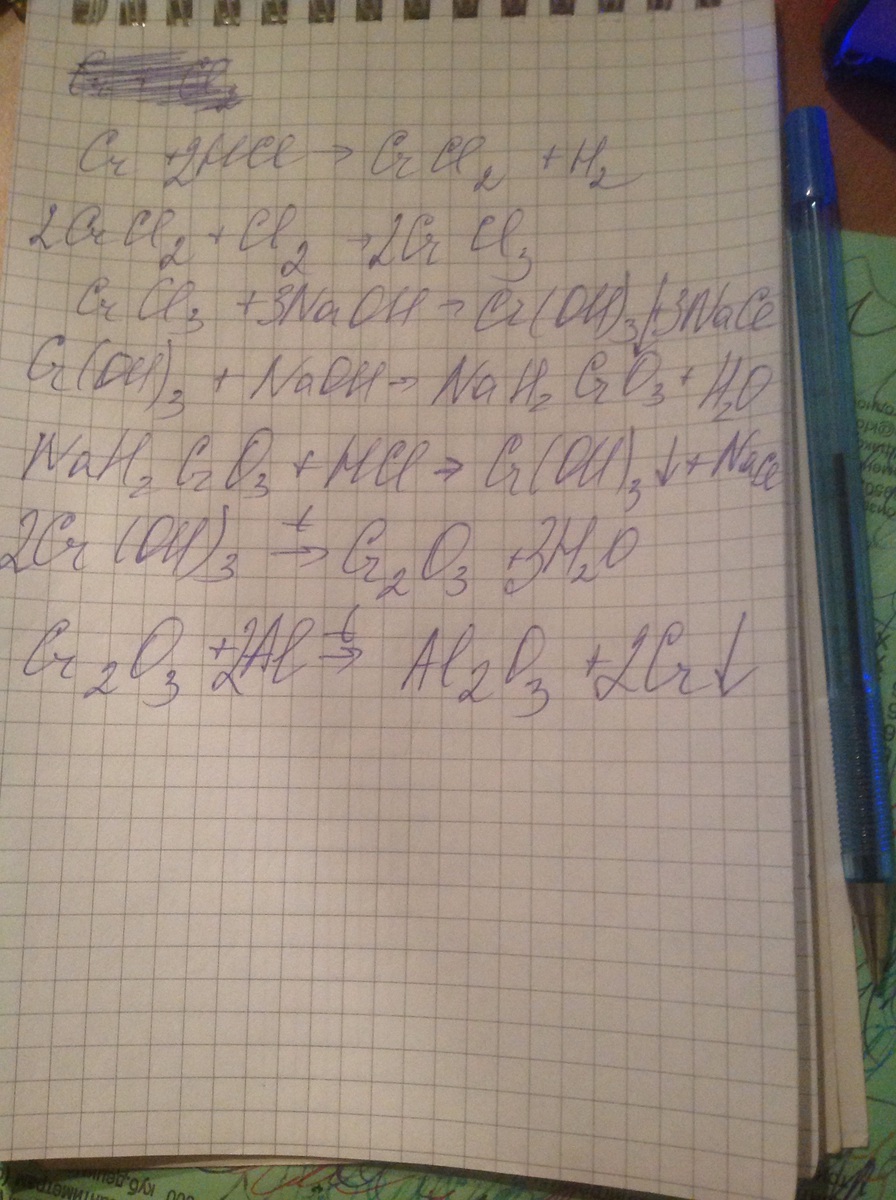 Cr + 2HCl → CrCl₂ + H₂
2CrCl₂ + Cl₂ → 2CrCl₃
CrCl₃ + 3NaOH → Cr(OH)₃↓ + 3NaCl
Cr(OH)₃ + NaOH → NaH₂CrO₃ + H₂O
NaH₂CrO₃ + HCl → Cr(OH)₃↓ + NaCl
2Cr(OH)₃ t→ Cr₂O₃ + 3H₂O
Cr₂O₃ + 2Al t→ Al₂O₃ + 2Cr↓